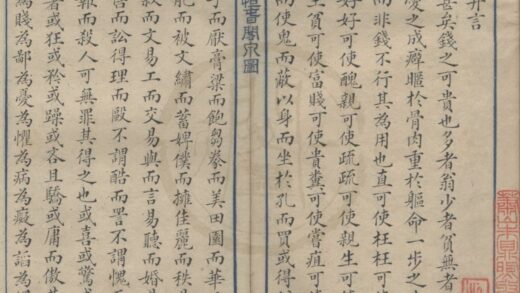 弁言
甚矣錢之可貴也多者翁少者貧無者
愛之成癖暱於骨肉重於軀命一步之
而非錢不行其為用也直可使枉枉可使
好好可使醜親可使疏疏可使親生可使
生貧可使富賤可使貴糞可使嘗疽可使
而使鬼而蔽以身而坐於孔而買或得
書閣
而厭膏粱而飽芻豢而美田園而華
能而被文繡而蓄婢僕而擁佳麗而秩
叙而文易工而交易與而言易聽而婚
言而訟得理而毆不謂酷而詈不謂愧
報而殺人可無罪其得之也或喜或驚或
者或狂或矜或躁或吝且驕或庸而傲
為賤為鄙為憂為懼為病為癡為諂為